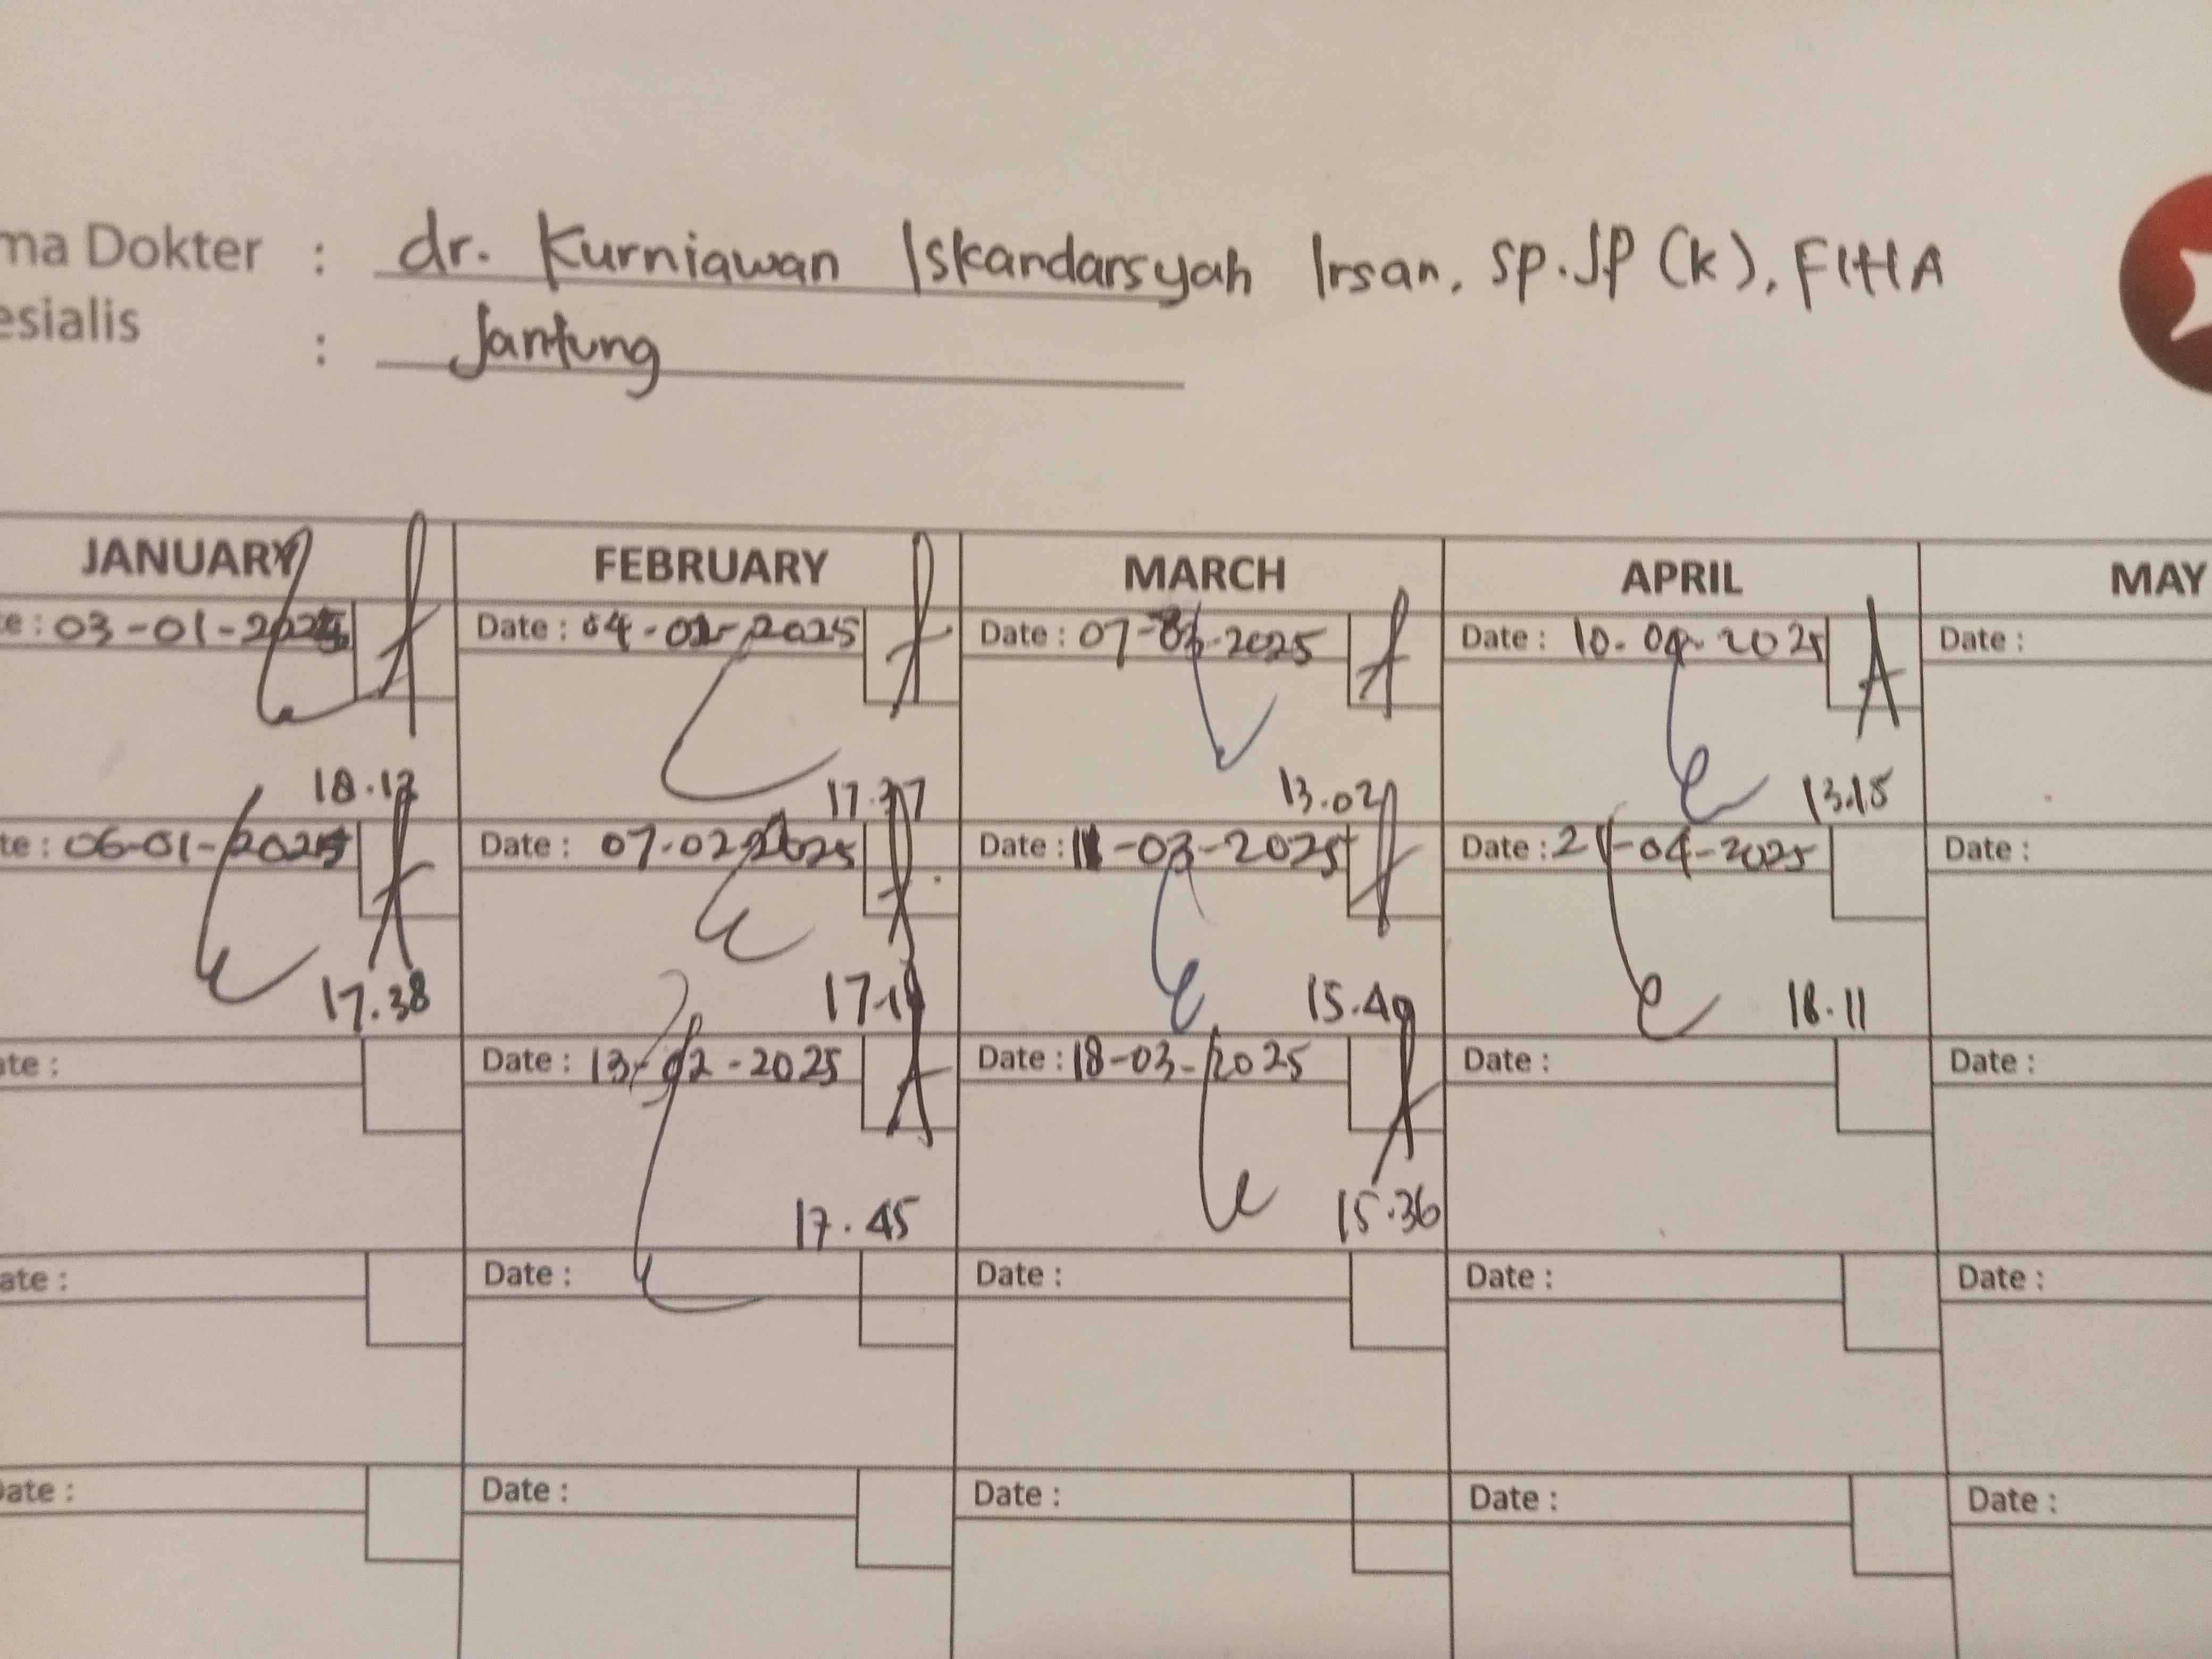 ma Dokter : dr. Kurniawan Iskandarsyah Irsan, Sp.JP (K), FIHA
esialis : Jantung
JANUARY FEBRUARY MARCH APRIL MAY
e : 03-01-2025 Date : 04-02-2025 Date : 07-03-2025 Date : 10-04-2025 Date :
18.12 17.37 13.02 13.15
te : 06-01-2025 Date : 07-02-2025 Date : 11-03-2025 Date : 21-04-2025 Date :
17.38 15.49 18.11
ate : Date : 13-02-2025 Date : 18-03-2025 Date : Date :
17.45 15.36
ate : Date : Date : Date : Date :
Date : Date : Date : Date : Date :